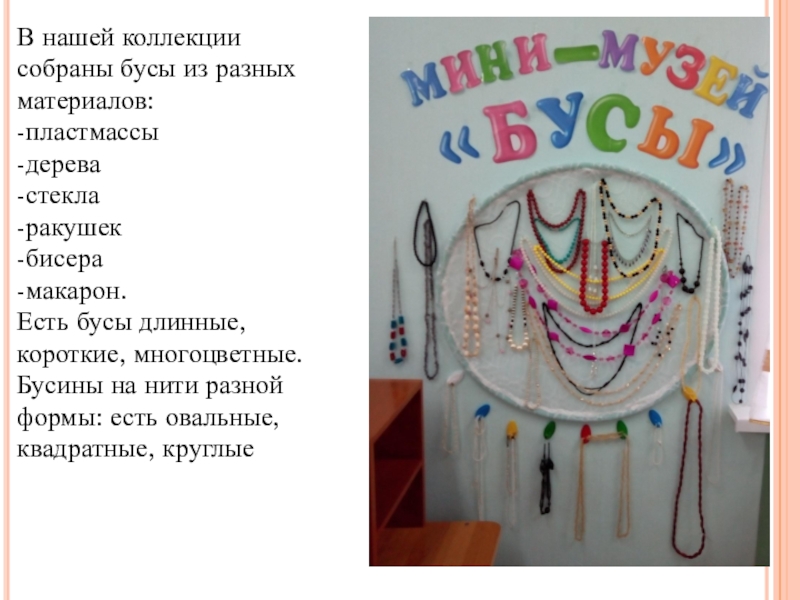 В нашей коллекции
собраны бусы из разных
материалов:
-пластмассы
-дерева
-стекла
-ракушек
-бисера
-макарон.
Есть бусы длинные,
короткие, многоцветные.
Бусины на нити разной
формы: есть овальные,
квадратные, круглые
МИНИ-МУЗЕЙ
«БУСЫ»